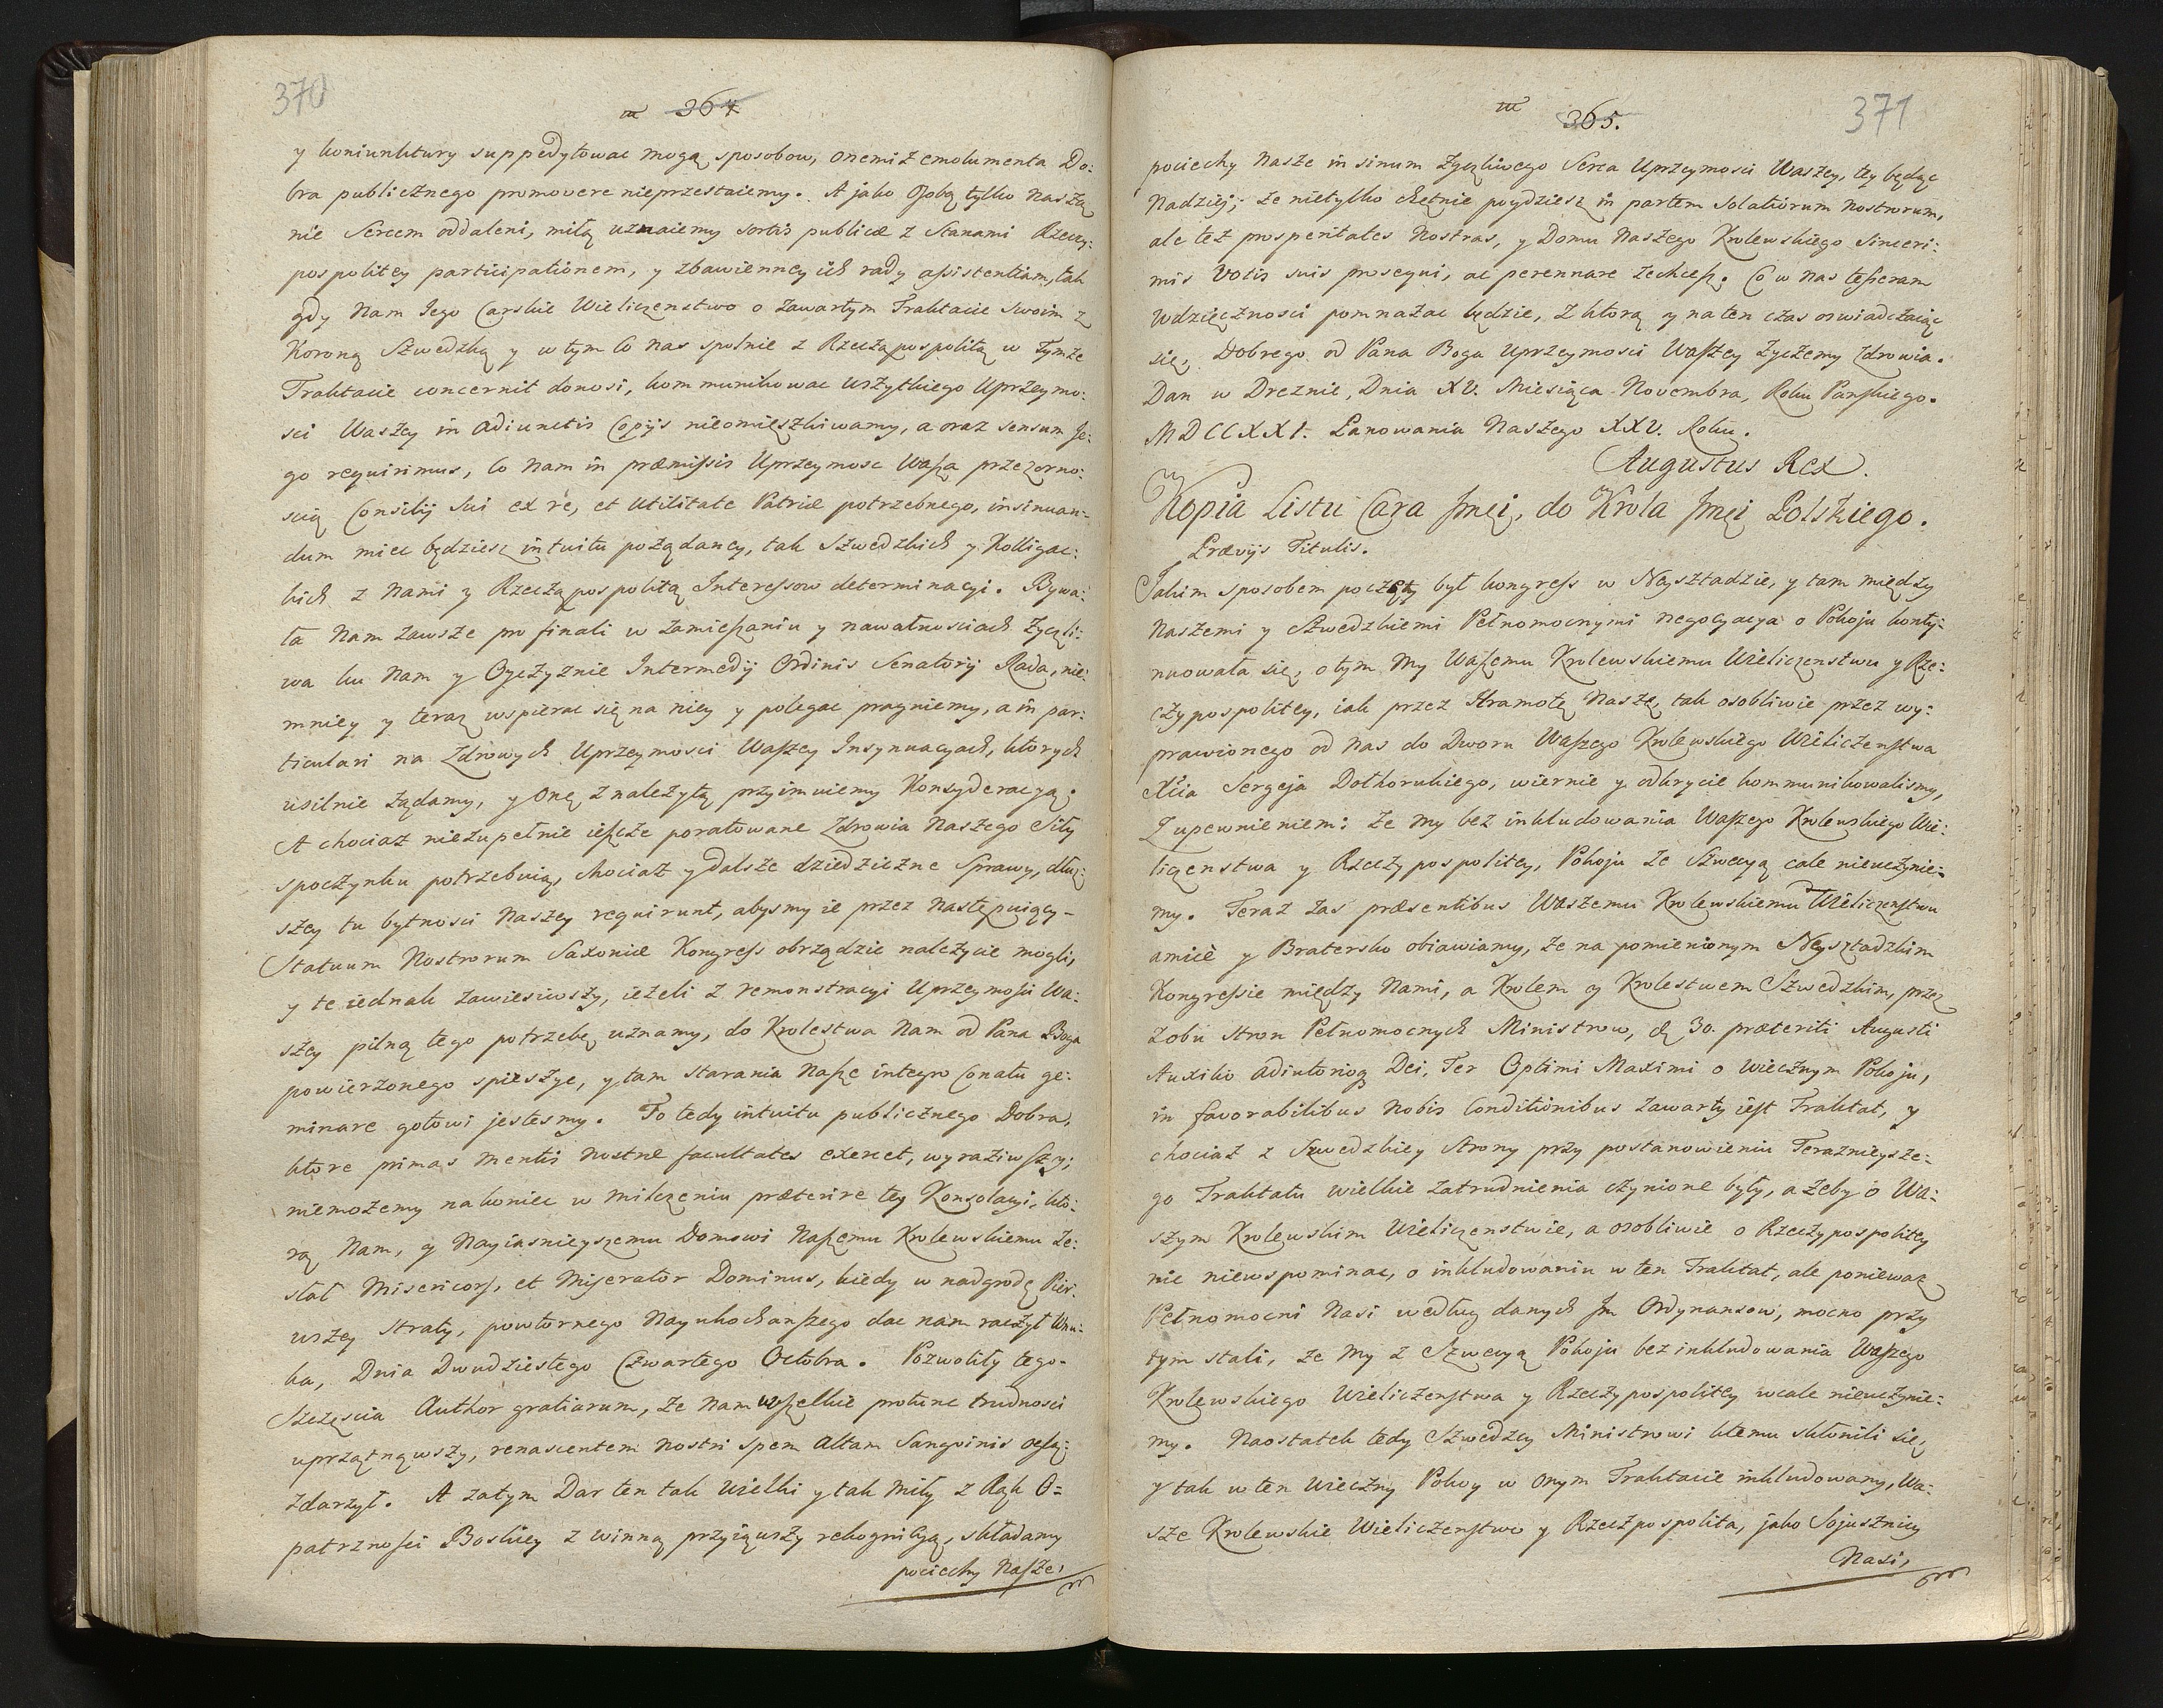 370
364
y koniunktury suppedytowac mogą sposobow, onemiż emolumenta Do:
bra publicznego promovere nieprzestaiemy. A jako Osobą tylko Naszą
nie Sercem oddaleni, miłą uznaiemy sortis publicæ z Stanami Rzeczy:
pospolitey participationem, y zbawienney ich rady assistentiam, tak
gdy Nam Jego Carskie Wieliczenstwo o zawartym Traktacie swoim z
Koroną Szwedzką y w tym co nas społnie z Rzecząpospolitą w tymże
Traktacie concernit donosi, kommunikowac wszytkiego Uprzeymo:
sci Waszey in adiunctis Copijs nieomieszkiwamy, a oraz sensum Je:
go requirimus, co Nam in præmissis Uprzeymosc Wasza przezorno:
scią Consilij sui ex re, et utilitate Patriæ potrzebnego, insinuan-
dum miec będziesz intuitu pożądaney, tak Szwedzkich y Kolligac:
kich z Nami y Rzecząpospolitą Interessow determinacyi. Bywa:
ła Nam zawsze pro finali w zamieszaniu y nawałnosciach życzli:
wa ku Nam y Oyczyznie Intermedij Ordinis Senatorij Rada, nie:
mniey y teraz wspierac się na niey y polegac pragniemy, a in par:
ticulari na Zdrowych Uprzeymosci Waszey Insynuacyach, ktorych
usilnie żądamy, y onę z należytą przyimuiemy Konsyderacyą.
A chociaż niezupełnie ieszcze poratowane Zdrowia Naszego Siły
spoczynku potrzebuią, chociaż y dalsze dziedziczne Sprawy, dłuż:
szey tu bytnosci Naszey requirunt, abysmy ie przez następuiący-
Statuum Nostrorum Saxoniæ Kongress obrządzie należycie mogli,
y te iednak zawiesiwszy, ieżeli z remonstracyi Uprzeymosci Wa:
szey pilną tego potrzebę uznamy, do Krolestwa Nam od Pana Boga
powierzonego spieszyc, y tam starania Nasze integro Conatu ge:
minare gotowi jestesmy. To tedy intuitu publicznego Dobra,
ktore primas mentis nostræ facultates exercet, wyraziwszy;
niemożemy nakoniec w milczeniu præterire tey Konsolacyi, kto:
rą Nam, y Nayiasnieyszemu Domowi Naszemu Krolewskiemu ze:
słał Misericors, et Miserator Dominus, kiedy w nadgrodę Pier:
wszey straty, powtornego Nayukochanszego dac nam raczył Wnu:
ka, Dnia Dwudziestego Czwartego Octobra. Pozwoliły tego-
Szczęscia Author gratiarum, że Nam wszelkie protunc trudnosci
uprzątnąwszy, renascentem nostri spem altam Sangvinis
zdarzył. A zatym Dar ten tak wielki y tak miły z Rąk O=
patrznosci Boskiey z winną przyiąwszy rekognicyą, składamy
pociechy Nasze,
371
365.
pociechy Nasze in sinum życzliwego Serca Uprzeymosci Waszey, tey będąc
Nadziej; że nietylko chętnie poydziesz in partem solatiorum nostrorum,
ale też prosperitates Nostras, y Domu Naszego Krolewskiego Sinceri:
mis Votis suis prosequi, ac perennare zechcesz. Co w nas tesseram
wdzięcznosci pomnażac będzie, z ktorą y na ten czas oswiadczaiąc
się, Dobrego od Pana Boga Uprzeymosci Waszey życzemy Zdrowia.
Dan w Dreznie, Dnia XV. Miesiąca Novembra, Roku Panskiego.
MDCCXXI. Panowania Naszego XXV. Roku.
Augustus Rex.
Kopia Listu Cara Jmci, do Krola Jmci Polskiego.
Prævijs Titulis.
Jakim sposobem poczęty był kongress w Neysztadzie, y tam między
Naszemi y Szwedzkiemi Pełnomocnymi negocyacya o Pokoju konty:
nuowała się, o tym my Waszemu Krolewskiemu Wieliczenstwu y Rze:
czypospolitey, iak przez Hramotę Naszę, tak osobliwie przez wy:
prawionego od nas do Dworu Waszego Krolewskiego Wieliczenstwa
Xcia Sergeja Dolhorukiego, wiernie y odkrycie kommunikowalismy,
Z upewnieniem: że my bez inkludowania Waszego Krolewskiego Wie:
liczenstwa y Rzeczypospolitey, Pokoju ze Szwecyą cale nieuczynie:
my. Teraz zas præsentibus Waszemu Krolewskiemu Wieliczenstwu
amicè y Bratersko obiawiamy, że na pomienionym Neysztadzkim
Kongressie między Nami, a Krolem y Krolestwem Szwedzkim, przez
z obu stron Pełnomocnych Ministrow, d. 30. præteriti Augusti
Auxilio adiutorioq Dei, Ter Optimi Maximi o wiecznym Pokoju,
in favorabilibus nobis Conditionibus zawarty iest Traktat, y
chociaż z Szwedzkiey strony przy postanowieniu Teraznieysze:
go Traktatu wielkie zatrudnienia czynione były, ażeby o Wa:
szym Krolewskim Wieliczenstwie, a osobliwie o Rzeczypospolitey
nic niewspominac, o inkludowaniu w ten Traktat, ale ponieważ
Pełnomocni Nasi według danych Jm Ordynansow, mocno przy
tym stali, że my z Szwecyą Pokoju bez inkludowania Waszego
Krolewskiego Wieliczenstwa y Rzeczypospolitey wcale nieuczynie:
my. Naostatek tedy Szwedzcy Ministrowi ktemu skłonili się,
y tak w ten wieczny Pokoy w onym Traktacie inkludowany, Wa:
sze Krolewskie Wieliczenstwo y Rzeczpospolita, jako Sojusznicy
Nasi,